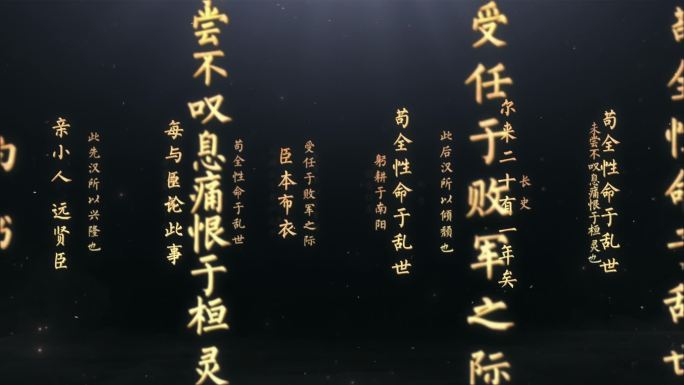 亲小人 远贤臣
此先汉所以兴隆也
每与臣论此事
尝不叹息痛恨于桓灵
苟全性命于乱世
臣本布衣
受任于败军之际
躬耕于南阳
苟全性命于乱世
此后汉所以倾颓也
受任于败军之际
尔来二十有一年矣
长史
未尝不叹息痛恨于桓灵也
苟全性命于乱世
苟全性命于乱世